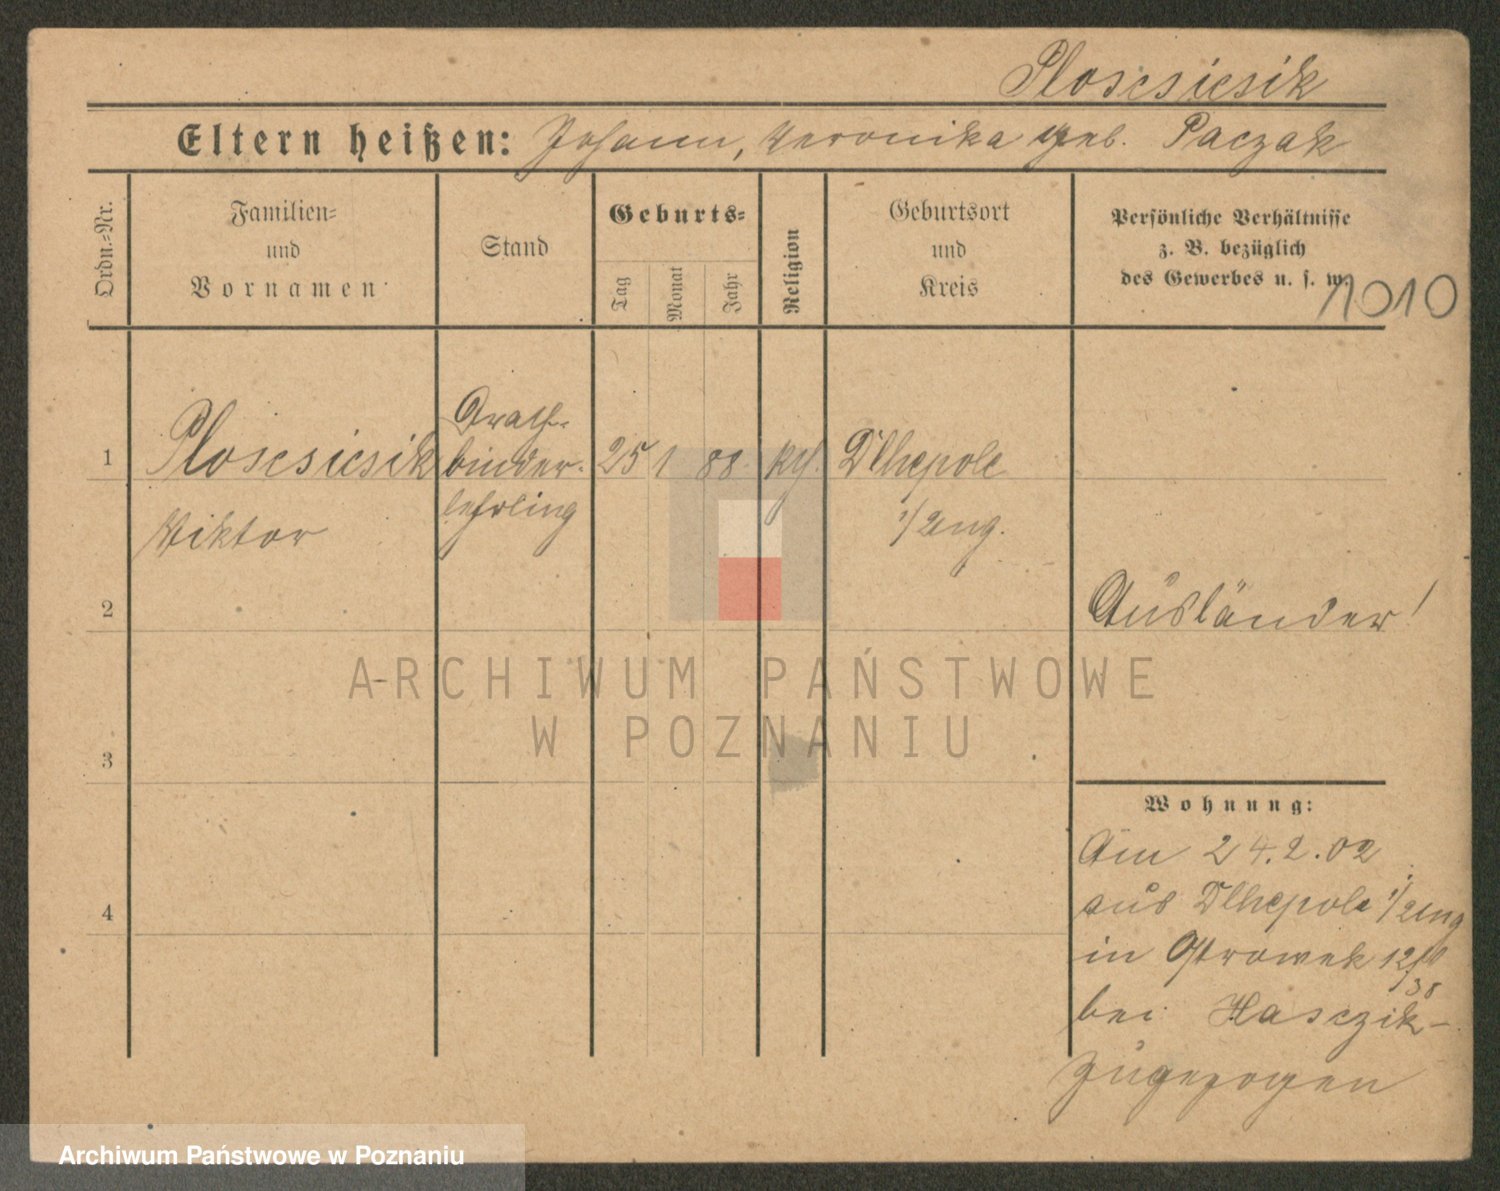 Ploscsicsik
Eltern heißen: Johann, Veronika geb. Paczak
Ordn.=Nr.
Familien=
und
Vornamen
Stand
Geburts=
Tag
Monat
Jahr
Religion
Geburtsort
und
Kreis
Persönliche Verhältnisse
z. B. bezüglich
des Gewerbes u. s. w.
1010
1
Ploscsicsik
Viktor
Drath-
binder-
lehrling
25
1
88
kth.
Dlhepole
i/Ung.
2
Ausländer!
3
Wohnung:
Am 24.2.02
aus Dlhepole i/Ung
in Ostrowek 12
bei Hasczik
zugezogen
4
ARCHIWUM PAŃSTWOWE
W POZNANIU
Archiwum Państwowe w Poznaniu